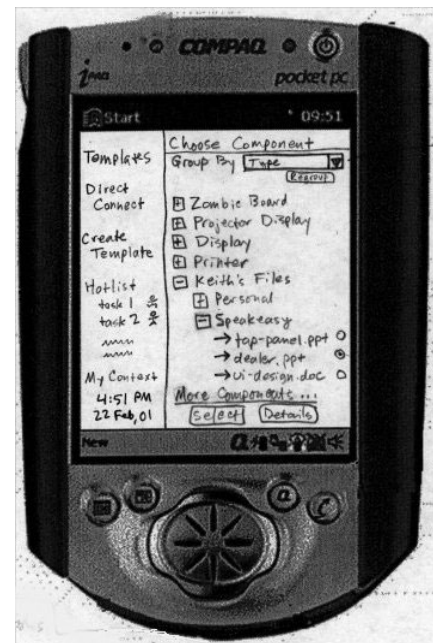 COMPAQ
iPAQ
pocket pc
Start
09:51
Templates
Direct
Connect
Create
Template
Hotlist
task 1
task 2
My Context
4:51 PM
22 Feb, 01
Choose Component
Group By Type
Regroup
+ Zombie Board
+ Projector Display
+ Display
+ Printer
- Keith's Files
+ Personal
- Speakeasy
→ tap-panel.ppt
→ dealer.ppt
→ ui-design.doc
More Components ...
Select Details
New